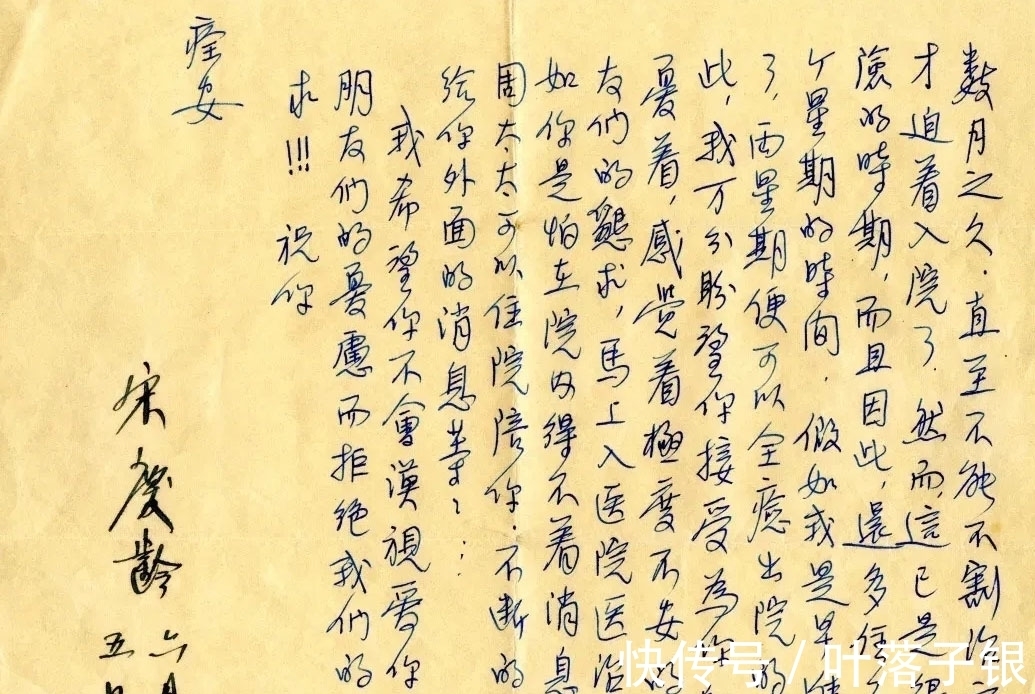 数月之久．直至不能不割治
才迫着入院了．然而，這已是很
險的時期，而且因此，還多住
个星期的時间．假如我是早
了，两星期便可以全癒出院的
此，我万分盼望你接受為你
憂着，感觉着極度不安的
友们的懇求，馬上入医院医治
如你是怕在院内得不着消息
周太太可以住院陪你．不断的
给你外面的消息等等：
我希望你不會漠視爱你
朋友们的憂慮而拒绝我们的
求!!! 祝你
痊安
宋慶齡
五 六
快传号／叶落子银